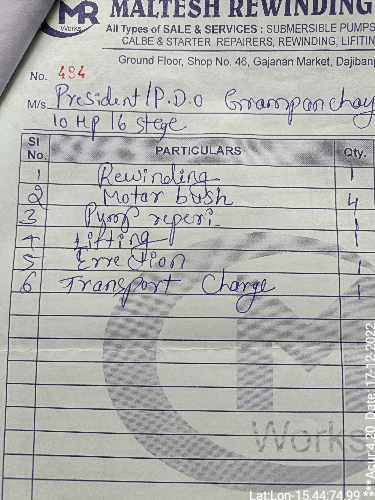 MR
Works
MALTESH REWINDING
All Types of SALE & SERVICES : SUBMERSIBLE PUMPS
CALBE & STARTER REPAIRERS, REWINDING, LIFTIN
Ground Floor, Shop No. 46, Gajanan Market, Dajiban
No. 484
M/s President/P.D.O Grampanchay
10 HP 16 stege
SI No. PARTICULARS Qty.
1 Rewinding 1
2 Motar bush 4
3 Pump reperi 1
4 Lifting 1
5 Errection 1
6 Transport Charge 1
Works
Lat:Lon-15.44:74.99 ** **Acur:4.20 Date: 17-12-2022